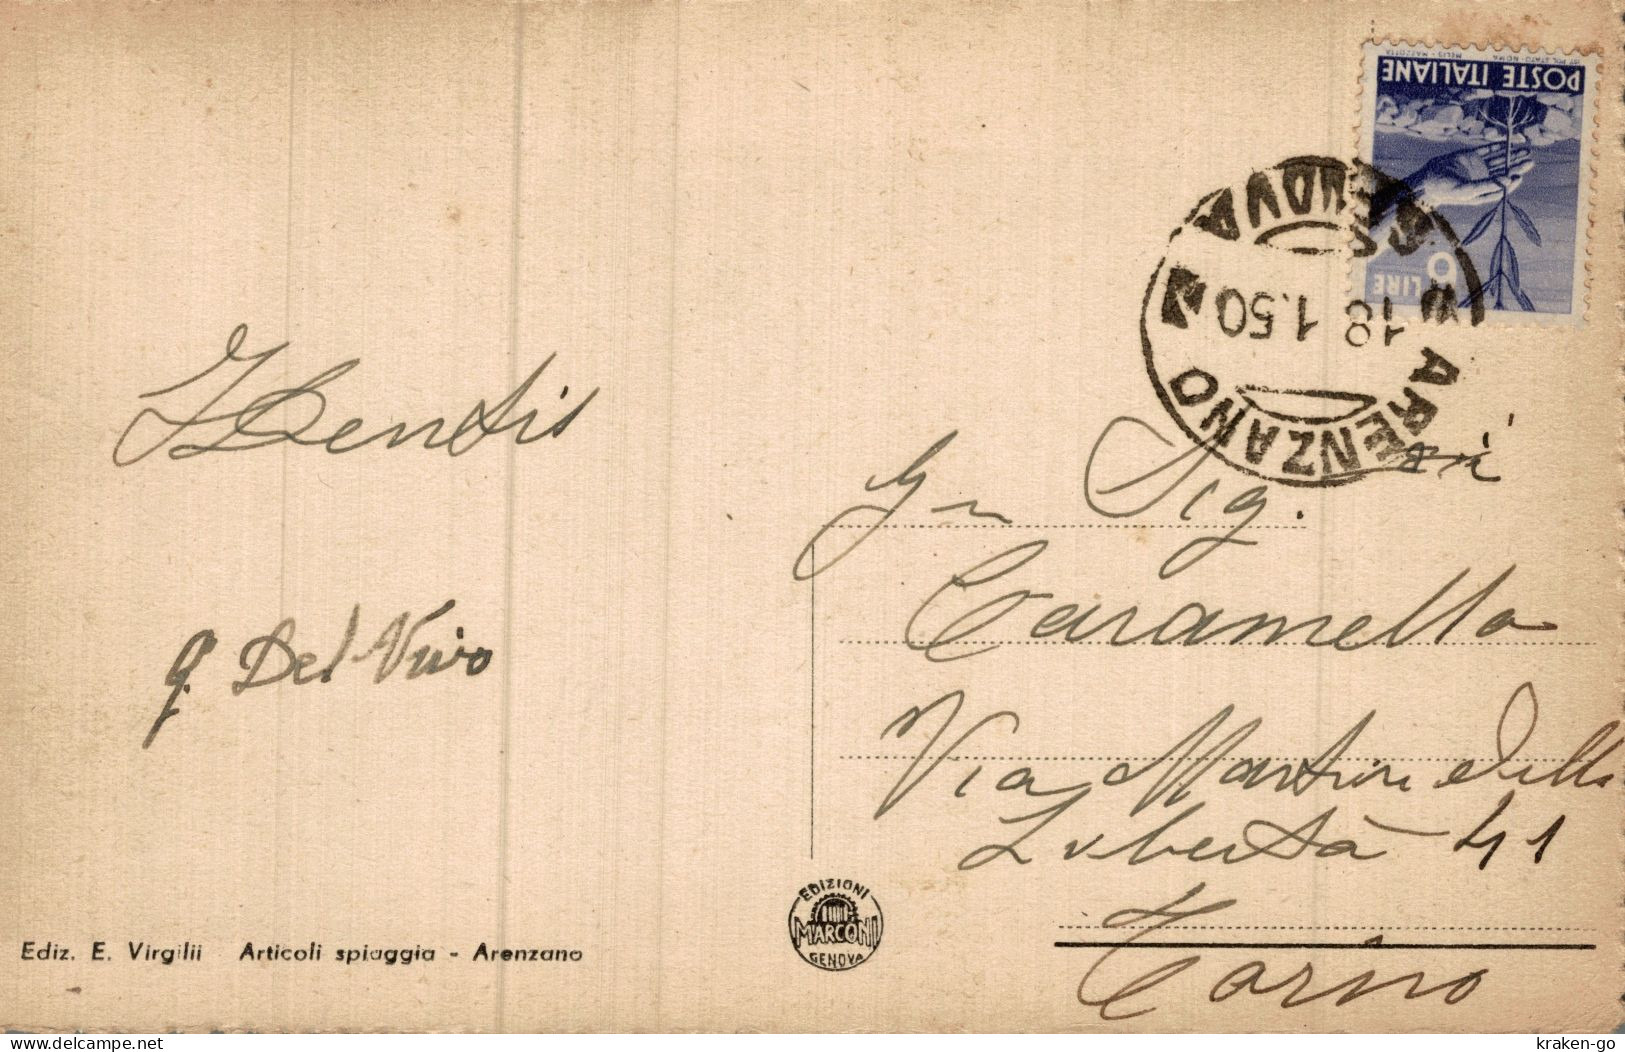 POSTE ITALIANE
IST. POL. STATO - ROMA MELIS - MAZZOTTA
LIRE
ARENZANO GENOVA
18 1.50
Gen Sig.
q. Del Vivo
Caramella
Via Martiri della
Libertà 41
Torino
EDIZIONI
MARCONI
GENOVA
Ediz. E. Virgilii Articoli spiaggia - Arenzano
Ediz. kraken-go